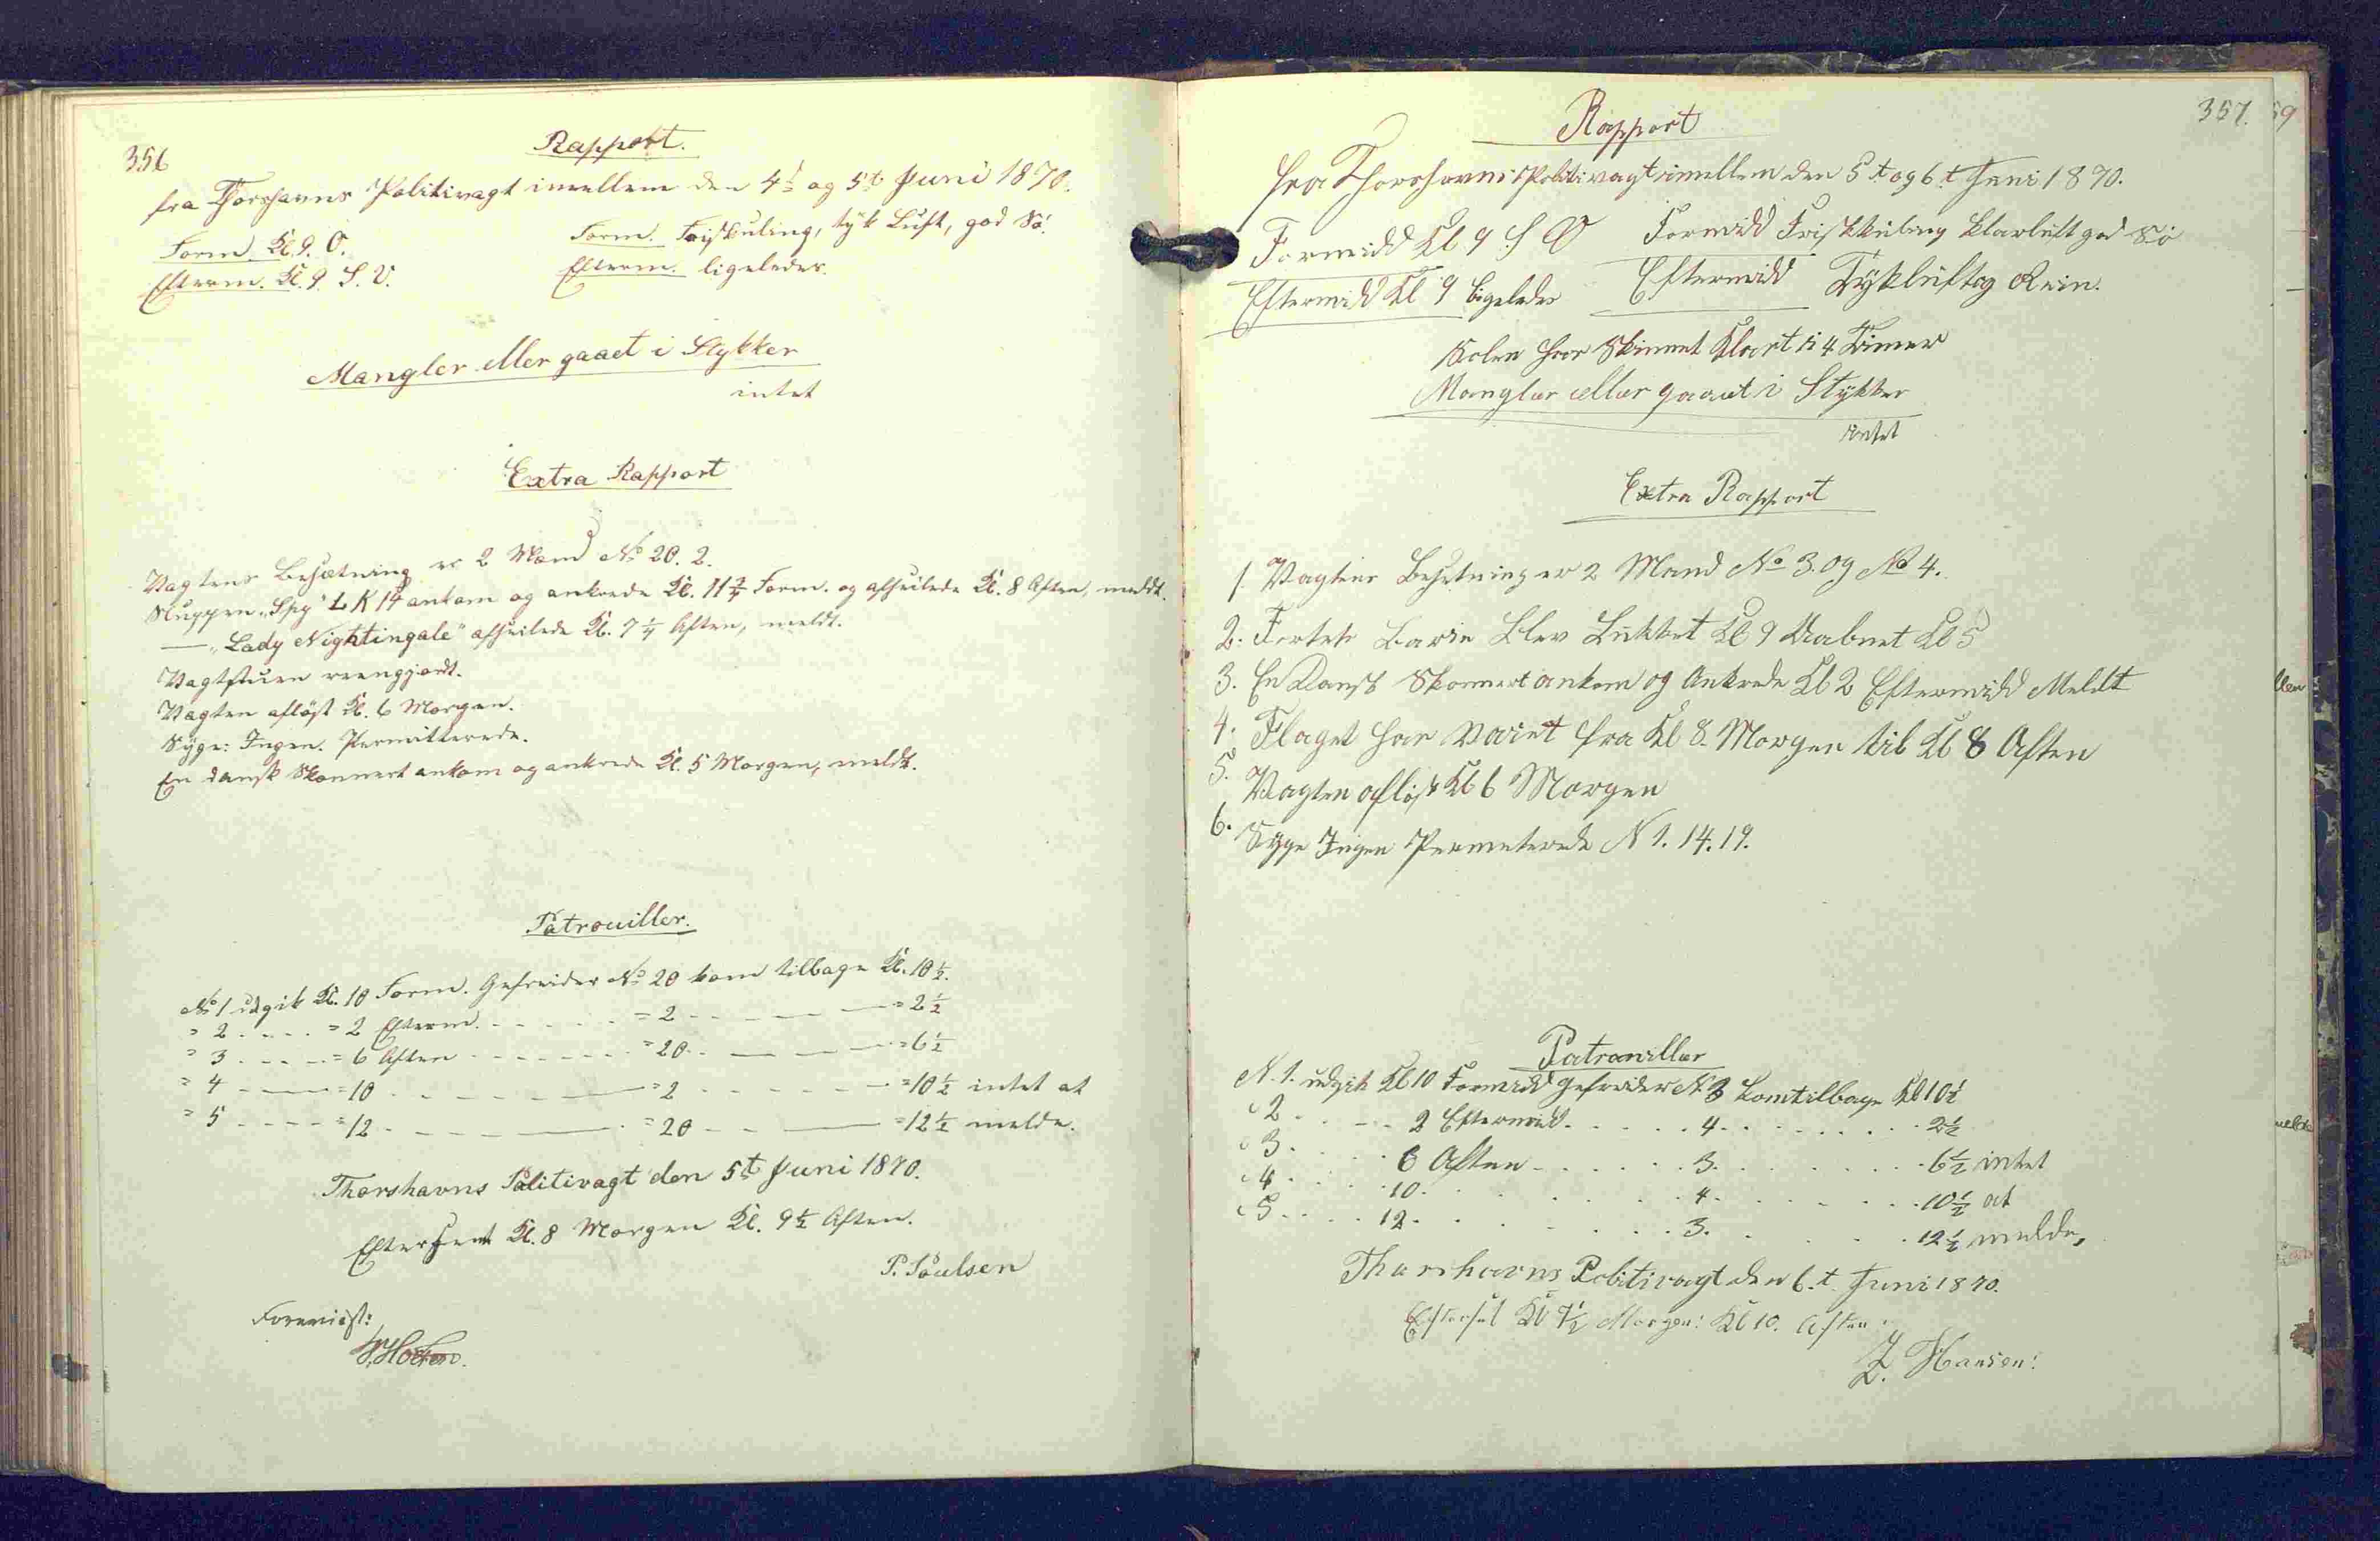 356
Rapport.
fra Thorshavns Politivagt imellem den 4d og 5t Juni 1870.
Form. Kl. 9. O. Form. Friskkuling, tyk Luft, god Sö.
Efterm. Kl. 9. S. V. Efterm. ligeledes.
Mangler eller gaaet i Stykker
intet
Extra Rapport
Vagtens Besætning er 2 Mand No 20. 2.
Sluppen "Spy" LK 14 ankom og ankrede Kl. 11 3/4 Form. og afseilede Kl. 8 Aften, meldt.
— "Lady Nightingale" afseilede Kl. 7 1/4 Aften, meldt.
Vagtstuen reengjordt.
Vagten aflöst Kl. 6 Morgen.
Syge: Ingen. Permitterede.
En dansk Skonnert ankom og ankrede Kl. 5 Morgen, meldt.
Patrouiller.
No 1 udgik Kl. 10 Form. Gefreider No 20 kom tilbage Kl. 10 1/2.
" 2 . . . . = 2 Efterm. - - - - - = 2 - - - - — = 2 1/2
" 3 . - - . = 6 Aften - - - - - - = 20 . . — - — = 6 1/2
" 4 - —— = 10 - - - - - —— = 2 - - - - - — = 10 1/2 intet at
" 5 - - - - = 12 - - - - —— = 20 - - —— = 12 1/2 melde.
Thorshavns Politivagt den 5t Juni 1870.
Efterseet Kl. 8 Morgen Kl. 9 1/2 Aften.
P. Poulsen
Foreviist:
357.
Rapport
fra Thorshavns Politivagt imellem den 5.t og 6.t Juni 1870.
Formidd Kl 9 S O Formidd Friskkuling klarluft god Sö
Eftermidd Kl 9 ligeledes Eftermidd Tykluft og Rein.
Solen har Skinnet Klart i 4 Timer
Mangler eller gaaet i Stykker
intet
Extra Rapport
1. Vagtens Besetning er 2 Mand No 3. og No 4.
2. Fortets Barie blev Lukket Kl 9 Aabnet Kl 5
3. En Dansk Skonnert ankom og Ankrede Kl 2 Eftermidd Meldt
4. Flaget har Vaiet fra Kl 8. Morgen til Kl 8 Aften
5. Vagten aflöst Kl 6 Morgen
6. Syge Ingen Permeterede N 1. 14. 19.
Patrouiller
N. 1. udgik Kl 10 Formidd gefreider N. 3 kom tilbage Kl 10 1/2
" 2 . . - - . 2 Eftermidd . . . . . 4 . . . . . . . 2 1/2
" 3 . . . . . 6 Aften - . . . . . 3. . . . . . . . 6 1/2 intet
" 4 . . . . 10. . . . . . . . 4. . . . . . . 10 1/2 at
" 5 . . . . 12 . . . . . . . 3. . . . . 12 1/2 melde,
Thorshavns Politivagt den 6.t Juni 1870.
Efterset Kl 7 1/2 Morgen: Kl 10. Aften.
Z. Hansen:
59